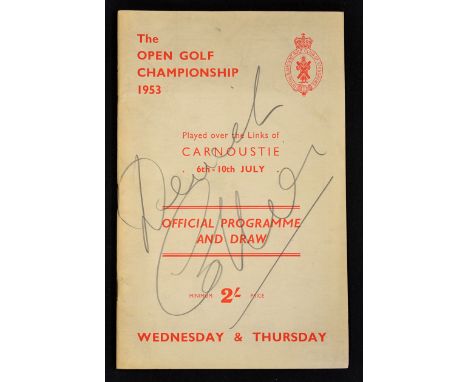 The
OPEN GOLF
CHAMPIONSHIP
1953
Played over the Links of
CARNOUSTIE
6th-10th JULY
OFFICIAL PROGRAMME
AND DRAW
MINIMUM 2/- PRICE
WEDNESDAY & THURSDAY